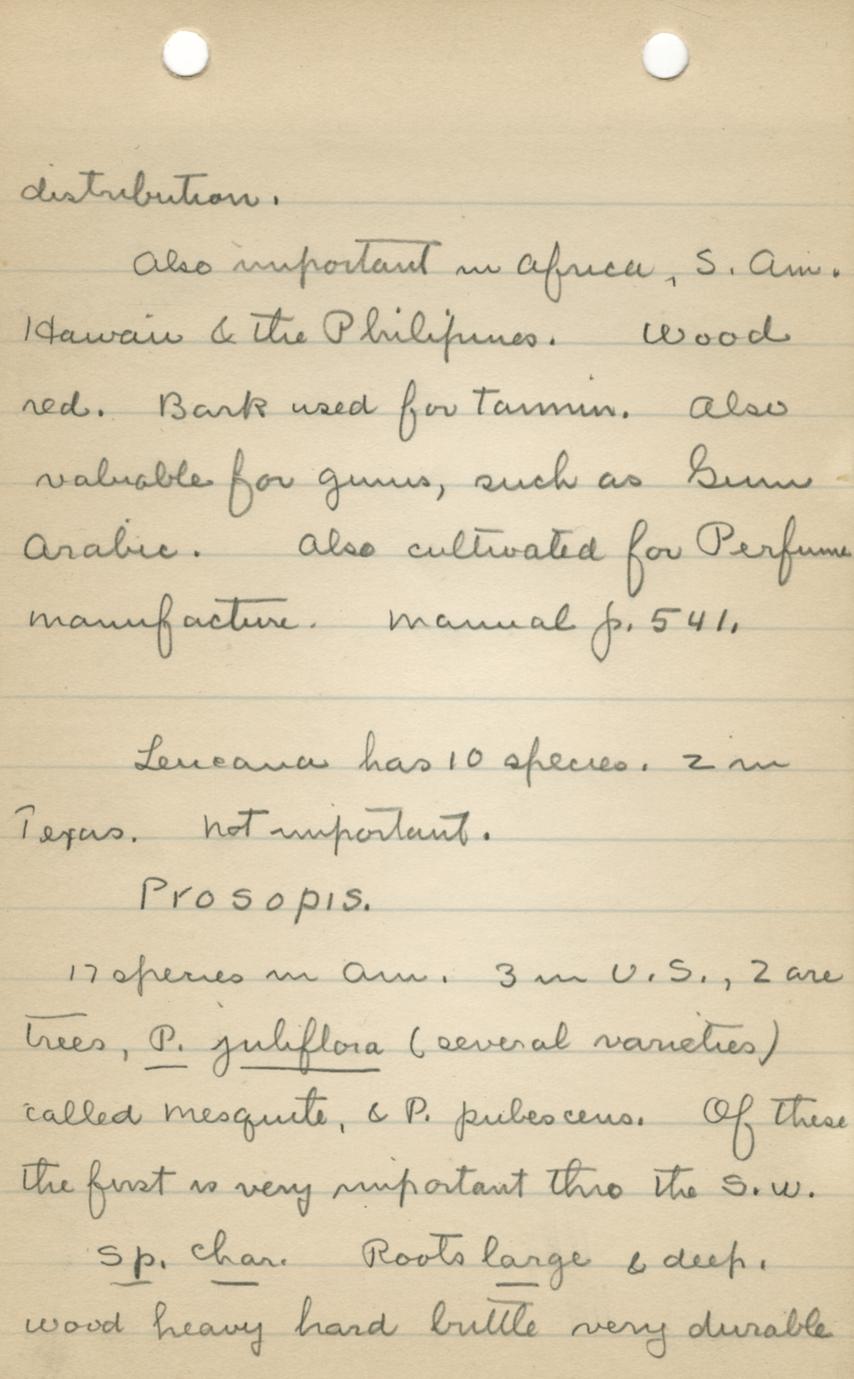 distribution.
Also important in Africa, S. Am.
Hawaii & the Philipines. Wood
red. Bark used for Tannin. Also
valuable for gums, such as Gum
Arabic. Also cultivated for Perfume
manufacture. Manual p. 541.
Leucana has 10 species. 2 in
Texas. Not important.
Prosopis.
17 species in Am. 3 in U.S., 2 are
trees, P. juliflora (several varieties)
called Mesquite, & P. pubescens. Of these
the first is very important thro the S.W.
Sp. Char. Roots large & deep.
wood heavy hard brittle very durable